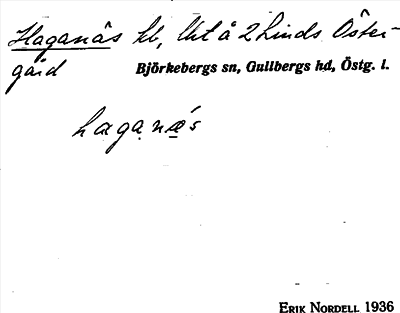 Haganäs hb, Ut å 2 Linds Öster-
gård Björkebergs sn, Gullbergs hd, Östg. l.
haganǽs
ERIK NORDELL 1936